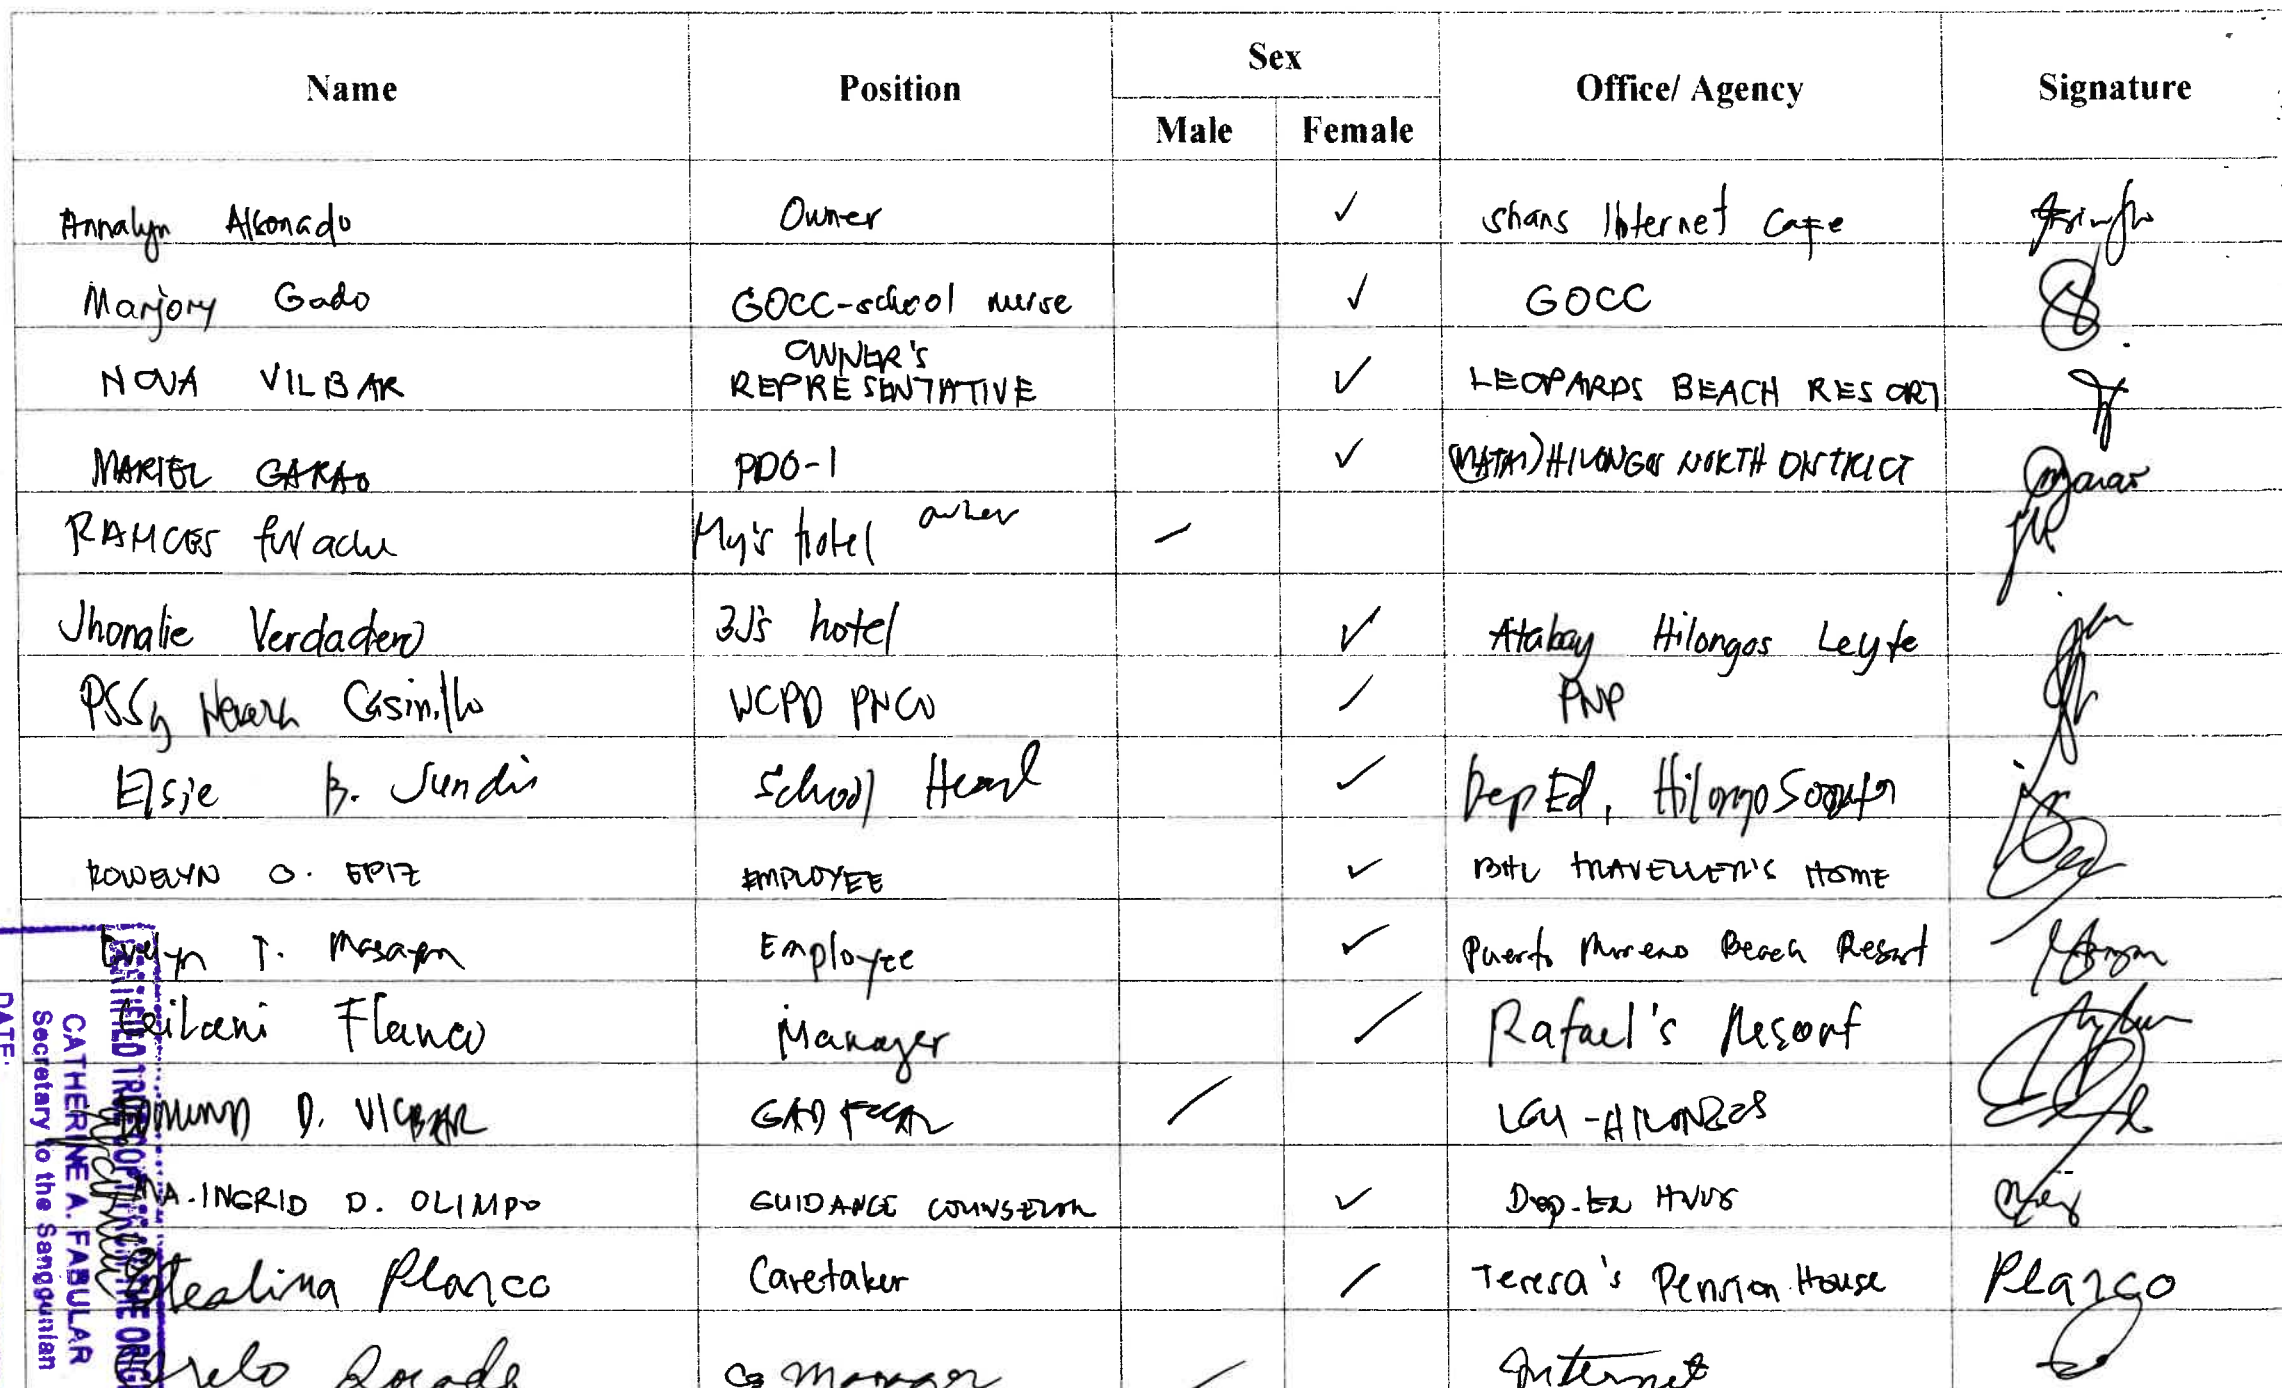 Name Position Sex Office/ Agency Signature
Male Female
Annalyn Alsonado Owner ✓ Shans Internet Cafe
Marjory Gado GOCC-school nurse ✓ GOCC
NOVA VILBAR OWNER'S REPRESENTATIVE ✓ LEOPARDS BEACH RESORT
MARIEL GARAO PDO-1 ✓ HILONGOS NORTH DISTRICT
RAMCES My's hotel owner
Jhonalie Verdadero 3J's hotel ✓ Atabay Hilongos Leyte
Casinillo WCPD PNCO PNP
Elsie B. Jundis School Head ✓ DepEd, Hilongos
ROWELYN O. EPIZ EMPLOYEE ✓ BHL TRAVELLER'S HOME
Evelyn T. Employee ✓ Puerto Moreno Beach Resort
Leilani Flanco Manager Rafael's Resort
D. VILBAR GAD FOCAL LGU-HILONGOS
MA. INGRID D. OLIMPO GUIDANCE COUNSELOR ✓ Dep-Ed HNVS
Plarco Caretaker Teresa's Pension House Plarco
Manager Internet
CERTIFIED TRUE COPY OF THE ORIG
CATHERINE A. FABULAR
Secretary to the Sanggunian
DATE: